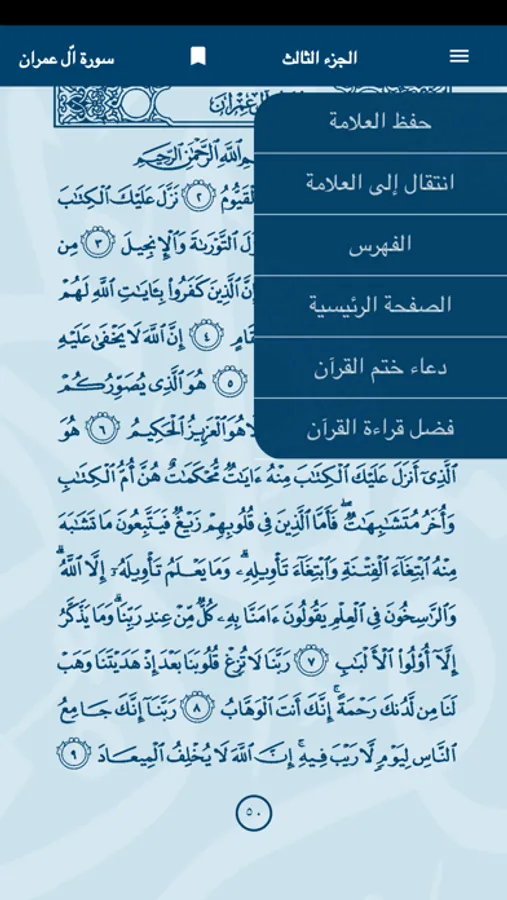 الجزء الثالث
سورة آل عمران
حفظ العلامة
انتقال إلى العلامة
الفهرس
الصفحة الرئيسية
دعاء ختم القرآن
فضل قراءة القرآن
عِمْرَان
ٱللَّهِ ٱلرَّحْمَٰنِ ٱلرَّحِيمِ
ٱلْقَيُّومُ ٢ نَزَّلَ عَلَيْكَ ٱلْكِتَٰبَ
ٱلتَّوْرَىٰةَ وَٱلْإِنجِيلَ ٣ مِن
إِنَّ ٱلَّذِينَ كَفَرُوا۟ بِـَٔايَٰتِ ٱللَّهِ لَهُمْ
٤ إِنَّ ٱللَّهَ لَا يَخْفَىٰ عَلَيْهِ
٥ هُوَ ٱلَّذِى يُصَوِّرُكُمْ
هُوَ ٱلْعَزِيزُ ٱلْحَكِيمُ ٦ هُوَ
ٱلَّذِىٓ أَنزَلَ عَلَيْكَ ٱلْكِتَٰبَ مِنْهُ ءَايَٰتٌ مُّحْكَمَٰتٌ هُنَّ أُمُّ ٱلْكِتَٰبِ
وَأُخَرُ مُتَشَٰبِهَٰتٌ ۖ فَأَمَّا ٱلَّذِينَ فِى قُلُوبِهِمْ زَيْغٌ فَيَتَّبِعُونَ مَا تَشَٰبَهَ
مِنْهُ ٱبْتِغَآءَ ٱلْفِتْنَةِ وَٱبْتِغَآءَ تَأْوِيلِهِۦ ۗ وَمَا يَعْلَمُ تَأْوِيلَهُۥٓ إِلَّا ٱللَّهُ ۗ
وَٱلرَّٰسِخُونَ فِى ٱلْعِلْمِ يَقُولُونَ ءَامَنَّا بِهِۦ كُلٌّ مِّنْ عِندِ رَبِّنَا ۗ وَمَا يَذَّكَّرُ
إِلَّآ أُو۟لُوا۟ ٱلْأَلْبَٰبِ ٧ رَبَّنَا لَا تُزِغْ قُلُوبَنَا بَعْدَ إِذْ هَدَيْتَنَا وَهَبْ
لَنَا مِن لَّدُنكَ رَحْمَةً ۚ إِنَّكَ أَنتَ ٱلْوَهَّابُ ٨ رَبَّنَآ إِنَّكَ جَامِعُ
ٱلنَّاسِ لِيَوْمٍ لَّا رَيْبَ فِيهِ ۚ إِنَّ ٱللَّهَ لَا يُخْلِفُ ٱلْمِيعَادَ ٩
٥٠